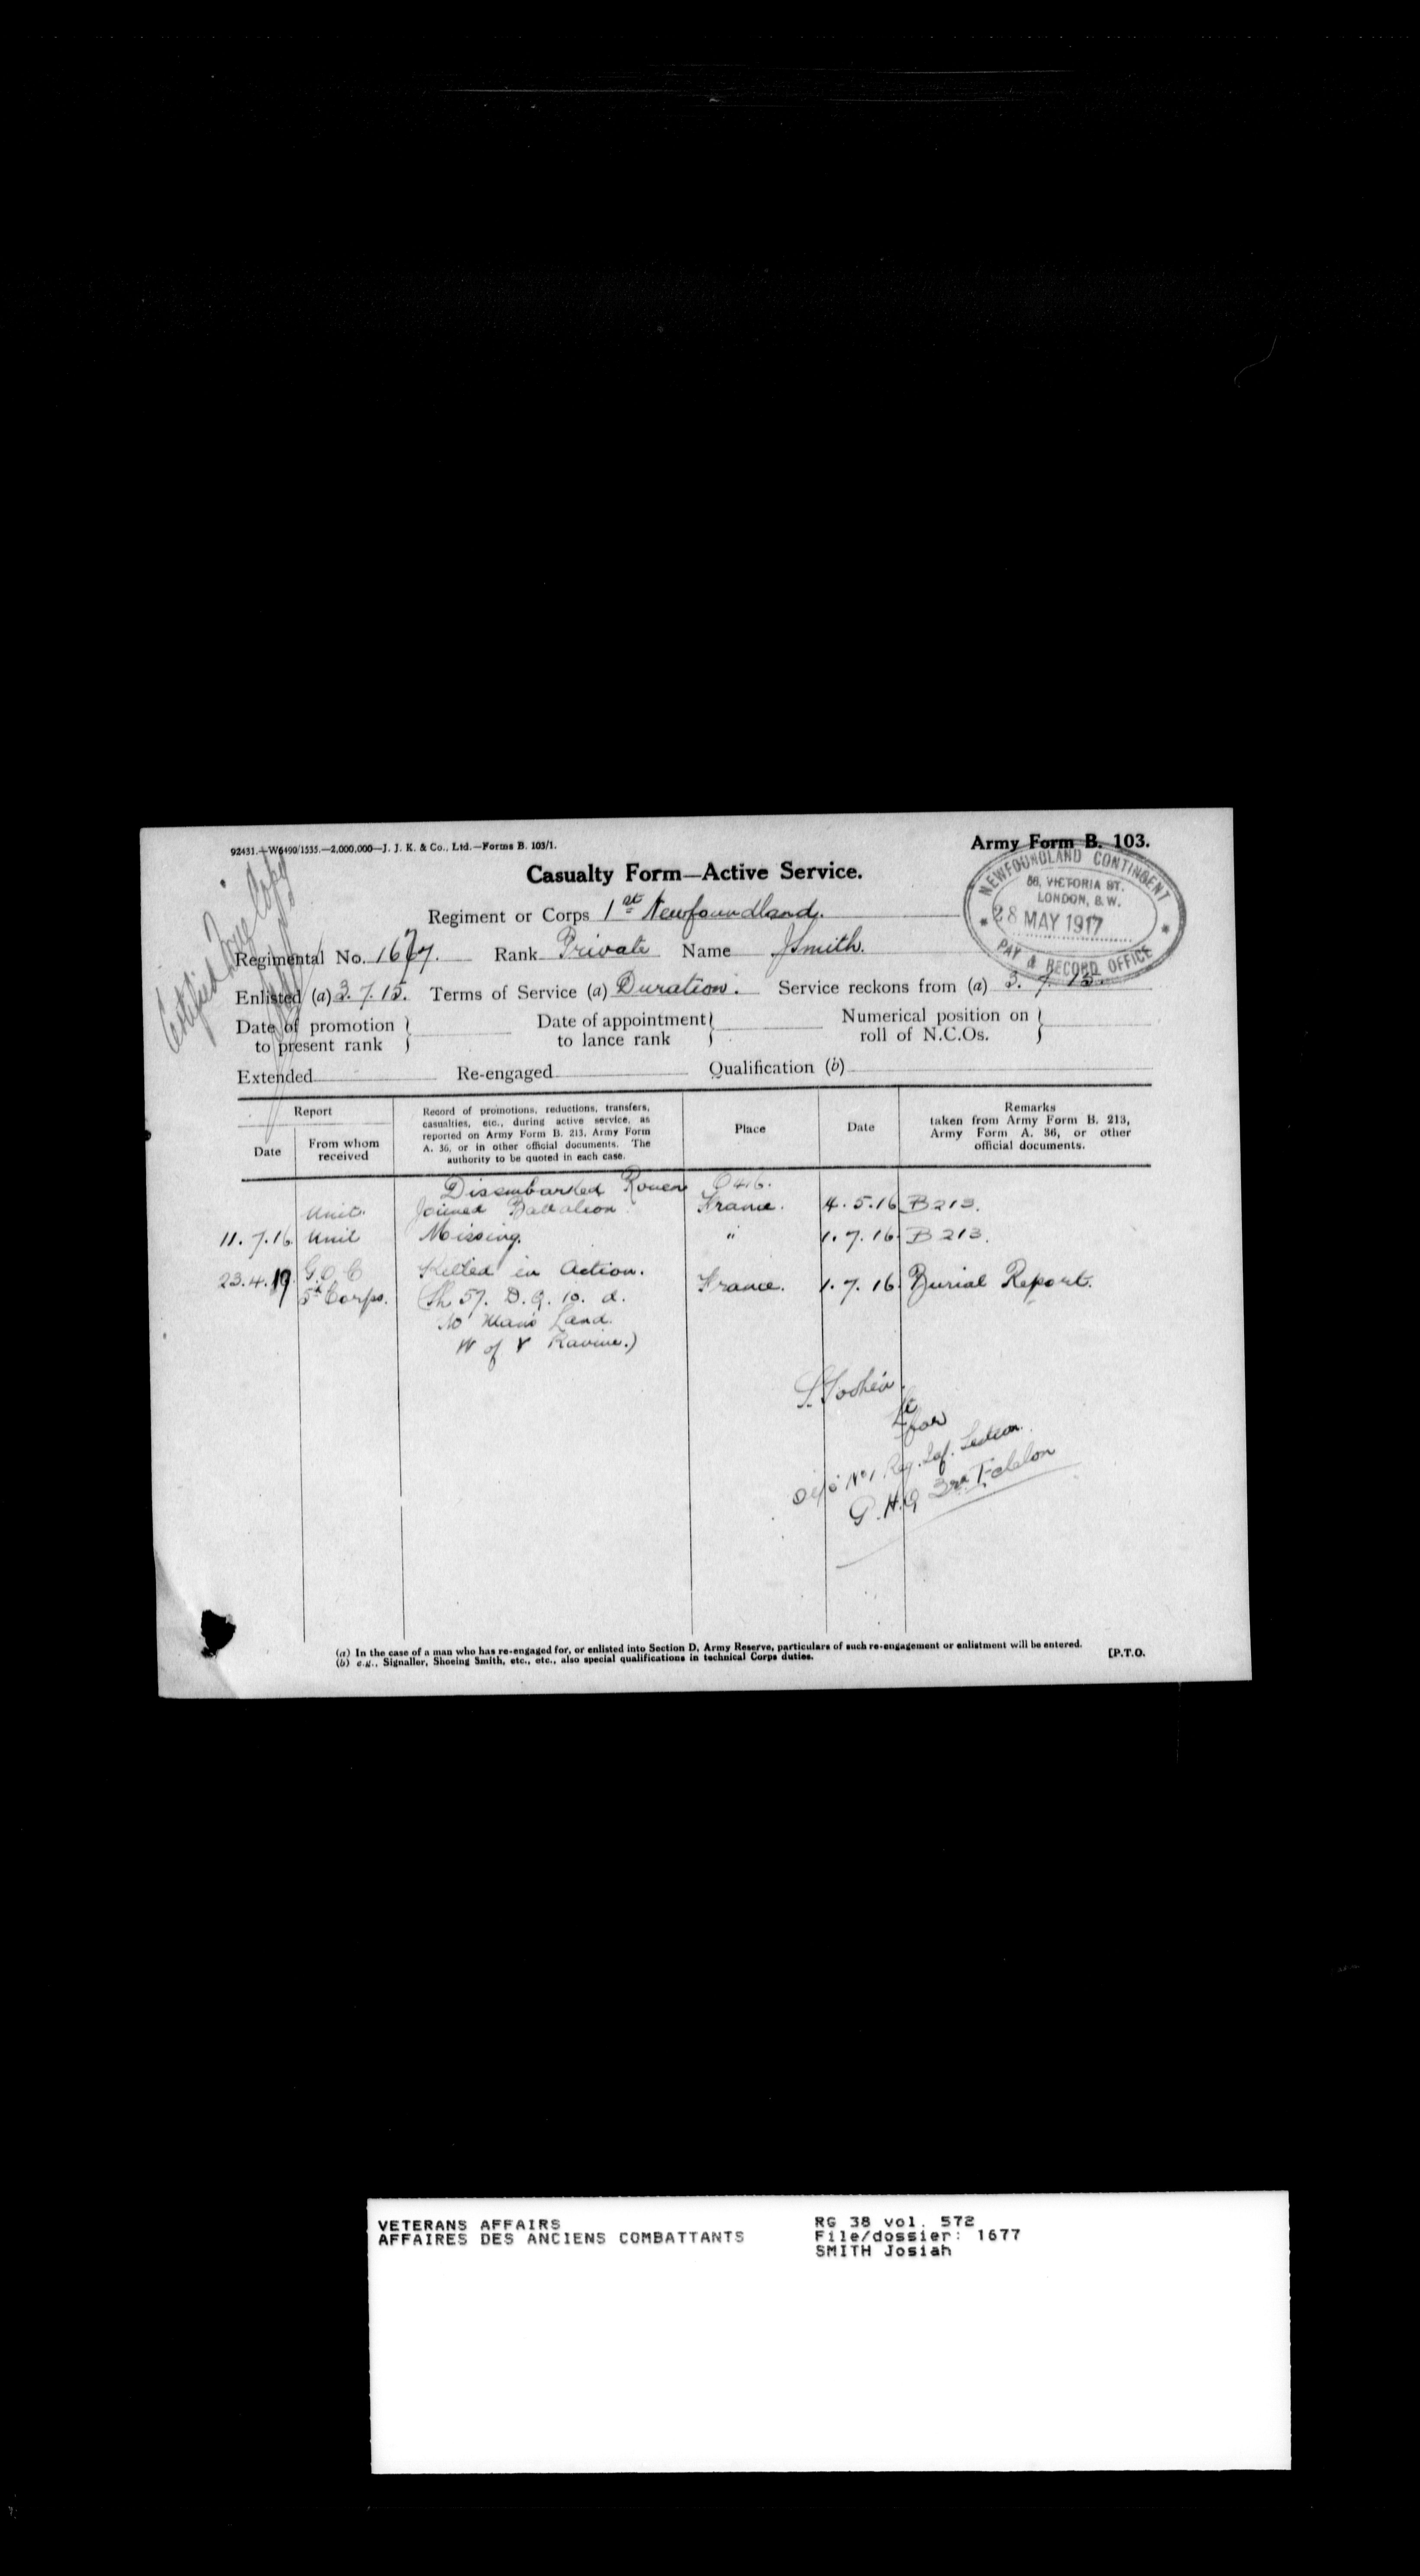 92431.—W6490/1535.—2,000,000—J. J. K. & Co., Ltd.—Forms B. 103/1.
Army Form B. 103.
Certified True Copy
Casualty Form—Active Service.
NEWFOUNDLAND CONTINGENT
58, VICTORIA ST.
LONDON, S.W.
28 MAY 1917
PAY & RECORD OFFICE
Regiment or Corps 1st Newfoundland.
Regimental No. 1677. Rank Private Name J Smith.
Enlisted (a) 3.7.15. Terms of Service (a) Duration. Service reckons from (a) 3.7.15.
Date of promotion to present rank
Date of appointment to lance rank
Numerical position on roll of N.C.Os.
Extended Re-engaged Qualification (b)
Report
Date
From whom received
Record of promotions, reductions, transfers, casualties, etc., during active service, as reported on Army Form B. 213, Army Form A. 36, or in other official documents. The authority to be quoted in each case.
Place
Date
Remarks taken from Army Form B. 213, Army Form A. 36, or other official documents.
Disembarked Rouen
Unit. Joined Battalion France. 4.5.16 B 213.
11.7.16 Unit Missing. " 1.7.16. B 213.
23.4.17 G.O.C Killed in Action.
5th Corps. (Sh 57. D. Q. 10. d. France. 1.7.16 Burial Report.
No Mans Land.
W of Y Ravine.)
Lt
for
No 1 Reg. Inf. Section.
G.H.Q 3rd Echelon
(a) In the case of a man who has re-engaged for, or enlisted into Section D, Army Reserve, particulars of such re-engagement or enlistment will be entered.
(b) e.g., Signaller, Shoeing Smith, etc., etc., also special qualifications in technical Corps duties.
[P.T.O.
VETERANS AFFAIRS
AFFAIRES DES ANCIENS COMBATTANTS
RG 38 vol. 572
File/dossier: 1677
SMITH Josiah